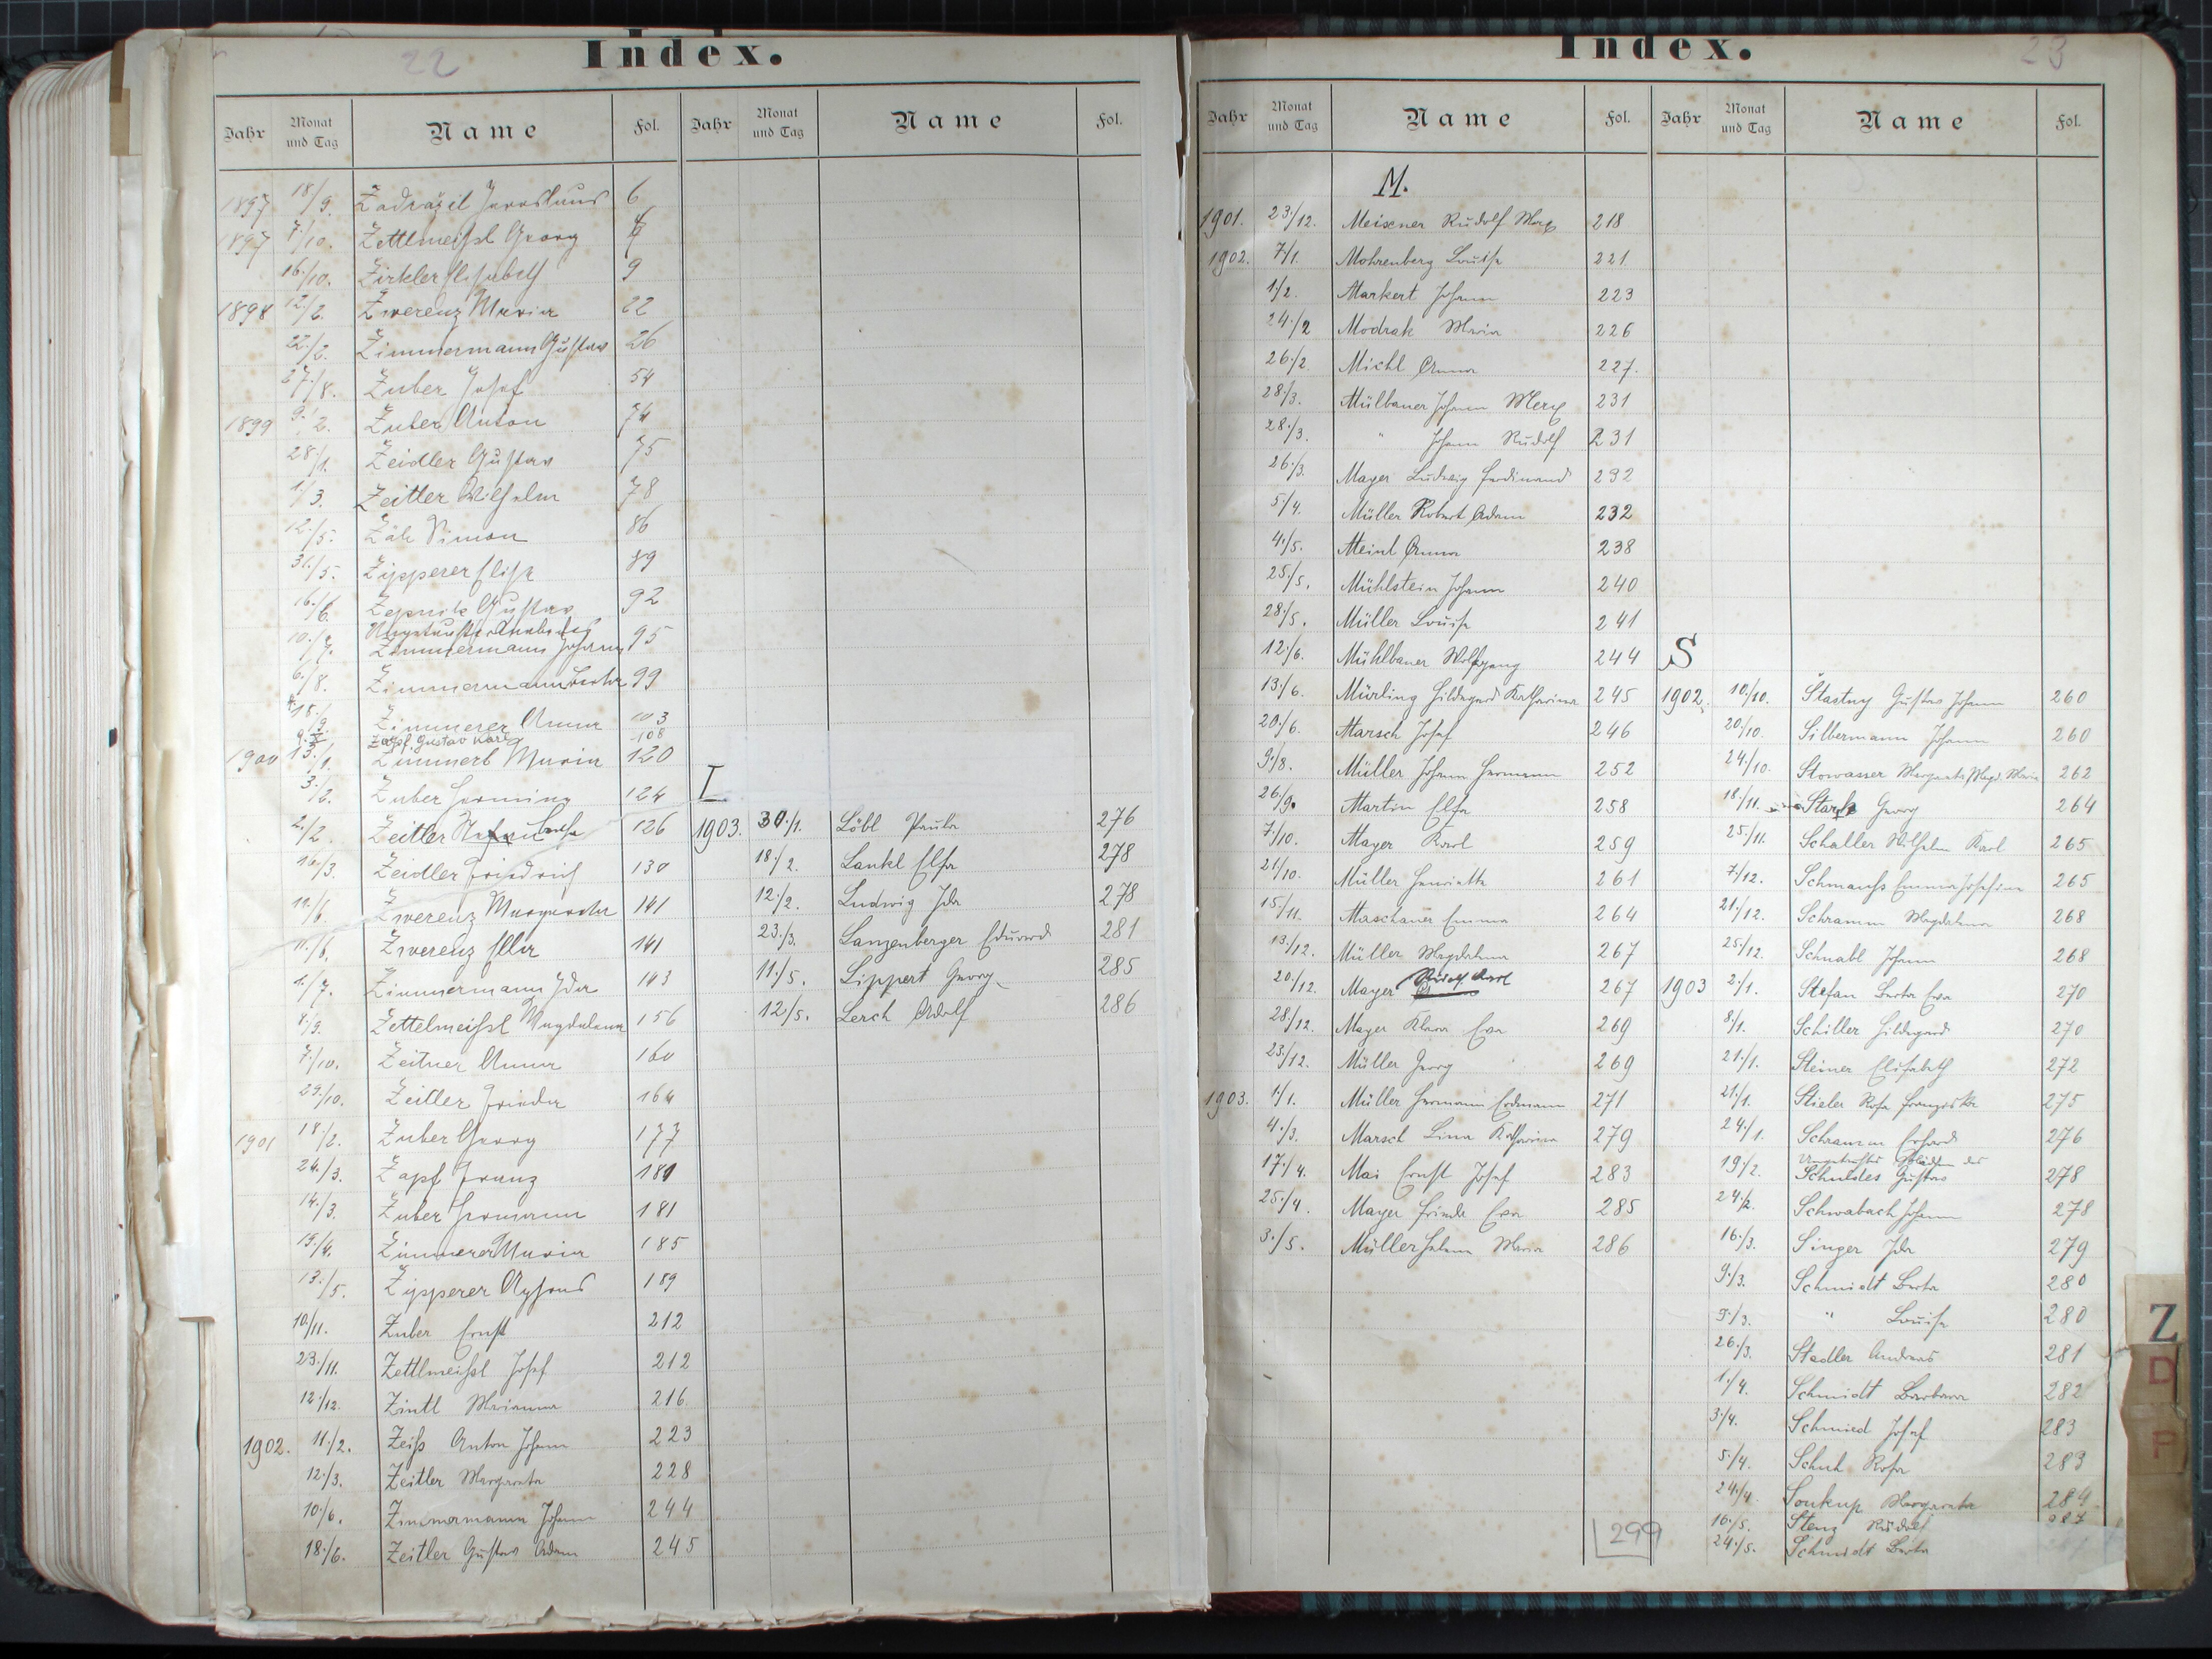 22
Index.
Jahr Monat und Tag Name Fol. Jahr Monat und Tag Name Fol.
1897 18/9. Zadražil Jaroslaus 6
1897 7/10. Zettlmeißl Georg
16/10. Zirkler Elisabeth 9
1898 12/2. Zwerenz Maria 22
22/2. Zimmermann Gustav 26
27/8. Zuber Josef 54
1899 9/2. Zuber Anton 74
28/1. Zeidler Gustav 75
1/3. Zeitler Wilhelm 78
12/5. Zäh Simon 86
31/5. Zipperer Elise 89
16/6. Zepnik Gustav 92
10/7. Ungetaufter Knabe des
Zimmermann Johann 95
6/8. Zimmermann 99
18/9. Zimmerer Anna 103
9.X. Zapf Gustav Karl 108
1900 13/1. Zimmerl Maria 120
3/2. Zuber Hermine 124
2/2. Zeitler 126
16/3. Zeidler Friedrich 130
11/6. Zwerenz Margareta 141
11/6. Zwerenz Ella 141
1/7. Zimmermann Ida 143
4/9. Zettelmeißl Magdalena 156
7/10. Zeitner Anna 160
29/10. Zeitler Frieda 164
1901 18/2. Zuber Georg 177
24/3. Zapf Franz 181
14/3. Zuber Hermann 181
19/4. Zimmerer Maria 185
13/5. Zipperer Alfons 189
10/11. Zuber Ernst 212
23/11. Zettlmeißl Josef 212
12/12. Zintl Marianna 216
1902. 11/2. Zeiß Anton Johann 223
12/3. Zeitler Margareta 228
10/6. Zimmermann Johann 244
18/6. Zeitler Gustav Adam 245
L
1903. 30/1. Löbl Paula 276
18/2. Lankl Elsa 278
12/2. Ludwig Ida 278
23/3. Lanzenberger Eduard 281
11/5. Lippert Georg 285
12/5. Lerch Adolf 286
23
Index.
Jahr Monat und Tag Name Fol. Jahr Monat und Tag Name Fol.
M.
1901. 23/12. Meixner Rudolf Max 218
1902. 7/1. Mohrenberg Louise 221
1/2. Markert Johann 223
24/2 Modrak Maria 226
26/2 Michl Anna 227.
28/3. Mülbauer Johann Max 231
28/3. " Johann Rudolf 231
26/3. Mayer Ludwig Ferdinand 232
5/4. Müller Robert Adam 232
4/5. Meinl Anna 238
25/5. Mühlstein Johann 240
28/5. Müller Louise 241
12/6. Mühlbauer Wolfgang 244
13/6. Mürling Hildegard Katharina 245
20/6. Marsch Josef 246
9/8. Müller Johann Hermann 252
26/9. Martin Elsa 258
7/10. Mayer Karl 259
21/10. Müller Henriette 261
15/11. Maschauer Emma 264
13/12. Müller Magdalena 267
20/12. Mayer Rudolf Karl 267
28/12. Mayer Klara Eva 269
23/12. Müller Georg 269
1903. 1/1. Müller Hermann Erdmann 271
4/3. Marsch Lina Katharina 279
17/4. Mai Ernst Josef 283
25/4. Mayer Frieda Eva 285
3/5. Müller Helena Maria 286
299
S
1902. 10/10. Štastny Gustav Johann 260
20/10. Silbermann Johann 260
24/10. Stowasser Margareta Magd. Maria 262
18/11. Stark Georg 264
25/11. Schaller Wilhelm Karl 265
7/12. Schmauß Emma Josefine 265
21/12. Schramm Magdalena 268
25/12. Schnabl Johann 268
1903 2/1. Stefan Berta Eva 270
8/1. Schiller Hildegard 270
21/1. Steiner Elisabeth 272
21/1. Stieler Rosa Franziska 275
24/1. Schramm Erhard 276
19/2. Ungetauftes Mädchen des
Schuldes Gustav 278
24/2. Schwabach Johann 278
16/3. Singer Ida 279
9/3. Schmidt Berta 280
9/3. " Louise 280
26/3. Stadler Andreas 281
1/4. Schmidt Barbara 282
3/4. Schmied Josef 283
5/4. Schuh Rosa 283
24/4. Soukup Margareta 284
16/5. Stenz Rudolf 287
24/5. Schmidt Berta
Z
D
P